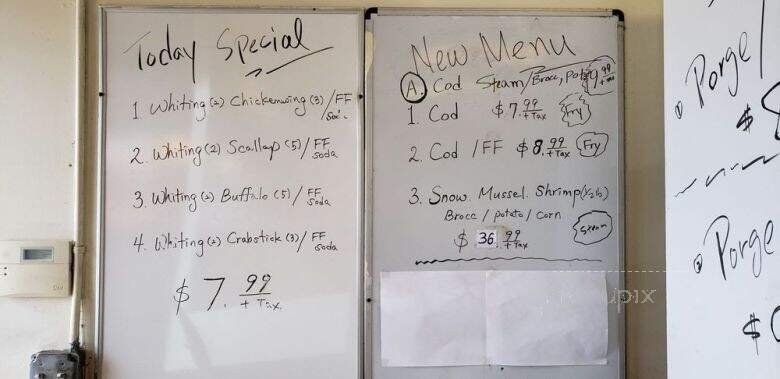 Today Special
1 Whiting (2) Chickenwing (3) / FF
Soda
2. Whiting (2) Scallap (5) / FF
Soda
3. Whiting (2) Buffalo (5) / FF
Soda
4. Whiting (2) Crabstick (3) / FF
Soda
$ 7.99
+ Tax
New Menu
A. Cod Steam / Brocc, Potato 9.99
+ Tax
1. Cod $ 7.99 Fry
+ Tax
2. Cod / FF $ 8.99 Fry
+ Tax
3. Snow. Mussel. Shrimp (1/2 lb)
Brocc / potato / corn
$ 36.99 Steam
+ Tax
Porge /
$
Porge
$